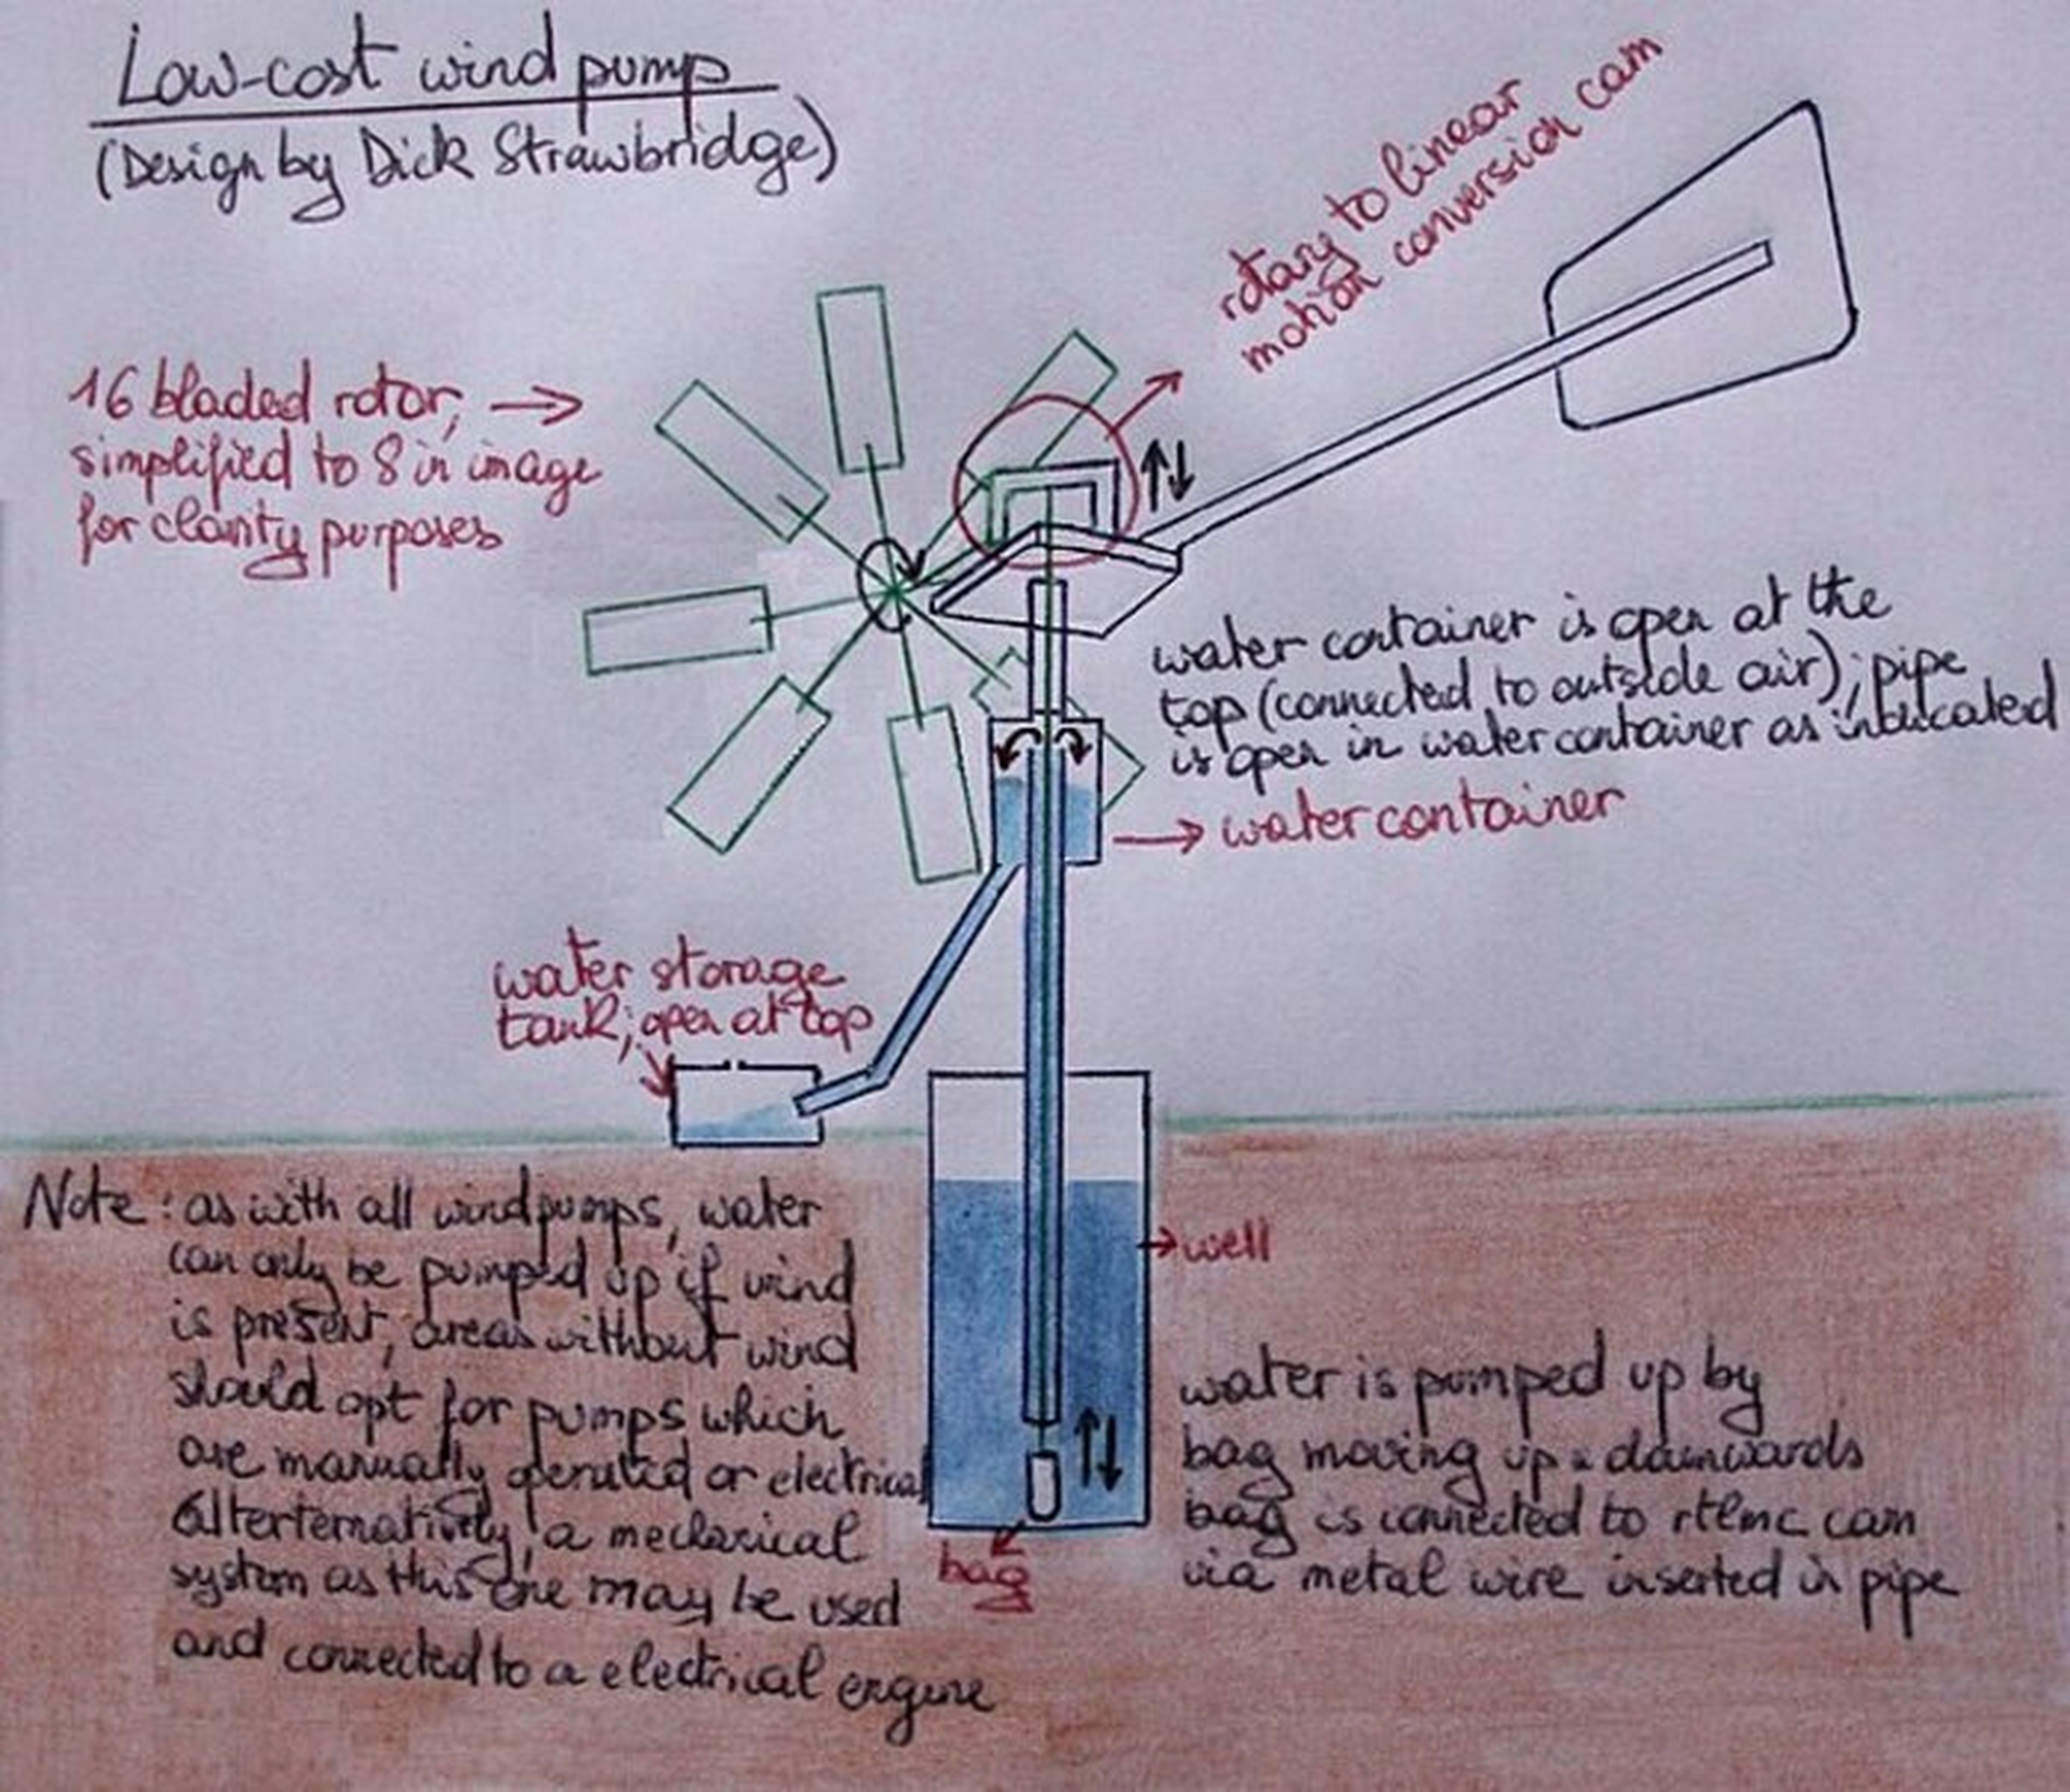 Low-cost wind pump
(Design by Dick Strawbridge)
rotary to linear
motion conversion cam
16 bladed rotor,
simplified to 8 in image
for clarity purposes
water container is open at the
top (connected to outside air); pipe
is open in water container as indicated
water container
water storage
tank; open at top
Note: as with all windpumps, water
can only be pumped up if wind
is present, areas without wind
should opt for pumps which
are manually operated or electrical
Alterternatively, a mechanical
system as this one may be used
and connected to a electrical engine
well
bag
water is pumped up by
bag moving up & downwards
bag is connected to rtlmc cam
via metal wire inserted in pipe